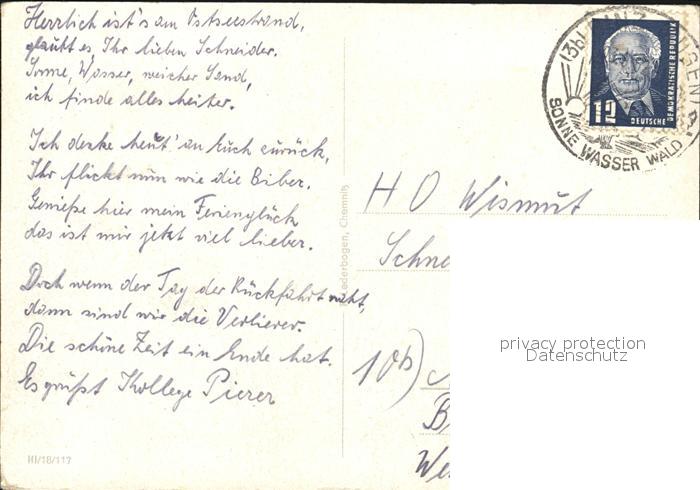 Herrlich ist's am Ostseestrand,
glaubt es Ihr lieben Schneider.
Sonne, Wasser, weicher Sand,
ich finde alles heiter.
Ich denke heut' an Euch zurück,
Ihr flickt nun wie die Biber.
Genieße hier mein Ferienglück
das ist mir jetzt viel lieber.
Doch wenn der Tag der Rückfahrt naht,
dann sind wir die Verlierer.
Die schöne Zeit ein Ende hat.
Es grüßt Kollege Pierer
III/18/117
Lederbogen, Chemnitz
SONNE WASSER WALD
12
DEUTSCHE
DEMOKRATISCHE REPUBLIK
H O Wismut
Schne
10b)
B
We
privacy protection
Datenschutz